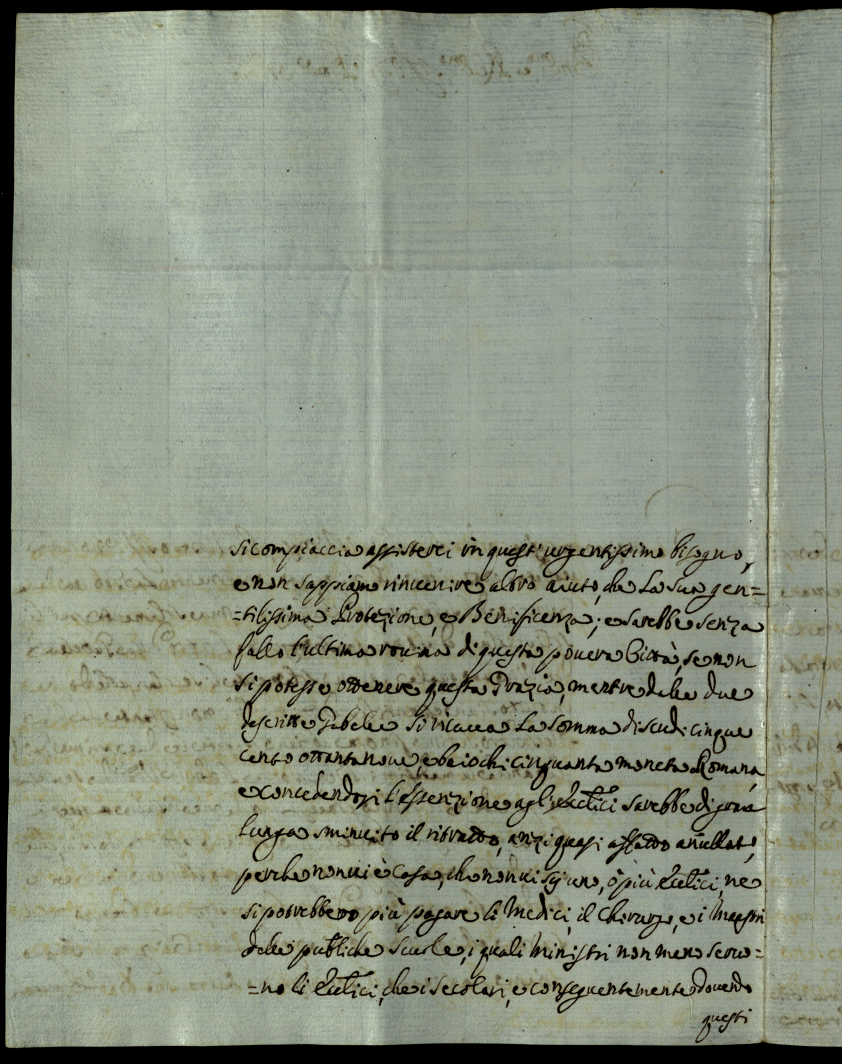 si compiaccia assisterci in quest'urgentissimo bisogno,
e non sappiamo rinvenire altro aiuto, che La Sua gen=
=tilissima Protezione, e Benificenza; e sarebbe senza
fallo l'ultima rovina di questa povera Città, se non
si potesse ottenere questa Grazia, mentre dalle due
descritte Gabelle si ricava La Somma di scudi cinque
cento ottanta nove, e baiochi cinquanta moneta Romana
e concedendosi l'essenzione agli Eccl.ci sarebbe di gran
lunga sminuito il ritratto, anzi quasi affatto anullato,
perche non vi è Casa, che non vi sij uno, ò più Eccl.ci, ne
si potrebbero più pagare li Medici, il Chirurgo, e i Maestri
delle publiche Scuole, i quali Ministri non meno servo=
=no li Eccl.ci, che i Secolari, e conseguentemente dovendo
questi